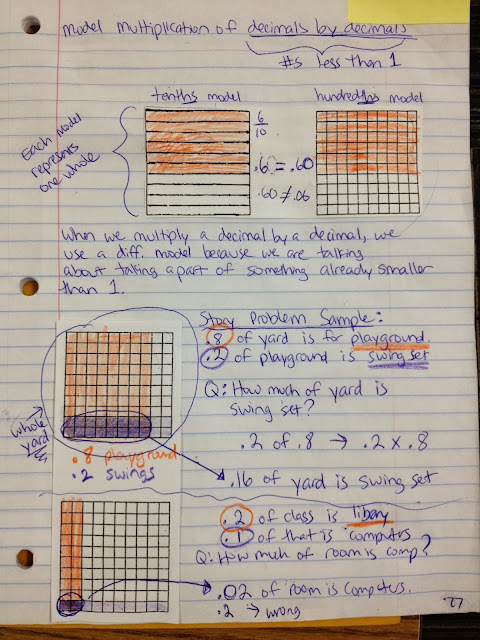 model multiplication of decimals by decimals
#s less than 1
tenths model
hundredths model
Each model
represents
one whole
6
10
.6 = .60
.60 ≠ .06
When we multiply a decimal by a decimal, we
use a diff. model because we are talking
about taking a part of something already smaller
than 1.
Story Problem Sample:
.8 of yard is for playground
.2 of playground is swing set
Q: How much of yard is
swing set?
whole
yard
.2 of .8 → .2 x .8
.8 playground
.2 swings
.16 of yard is swing set
.2 of class is libery
.1 of that is computers
Q: How much of room is comp?
.02 of room is computers.
.2 → wrong
27